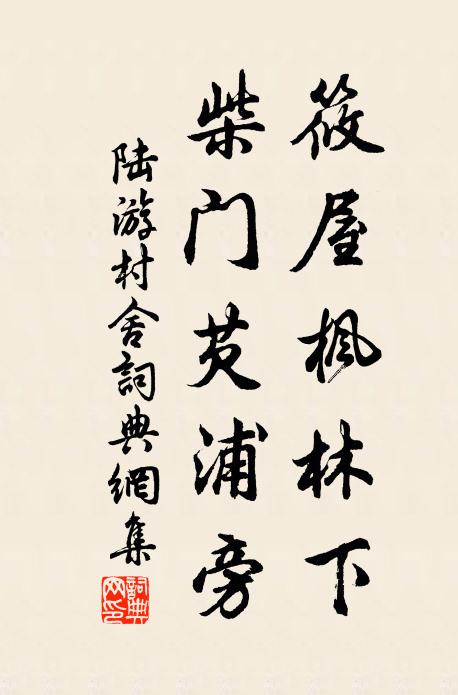 筱屋枫林下
柴门芡浦旁
陆游村舍詞典網集
詞典网印